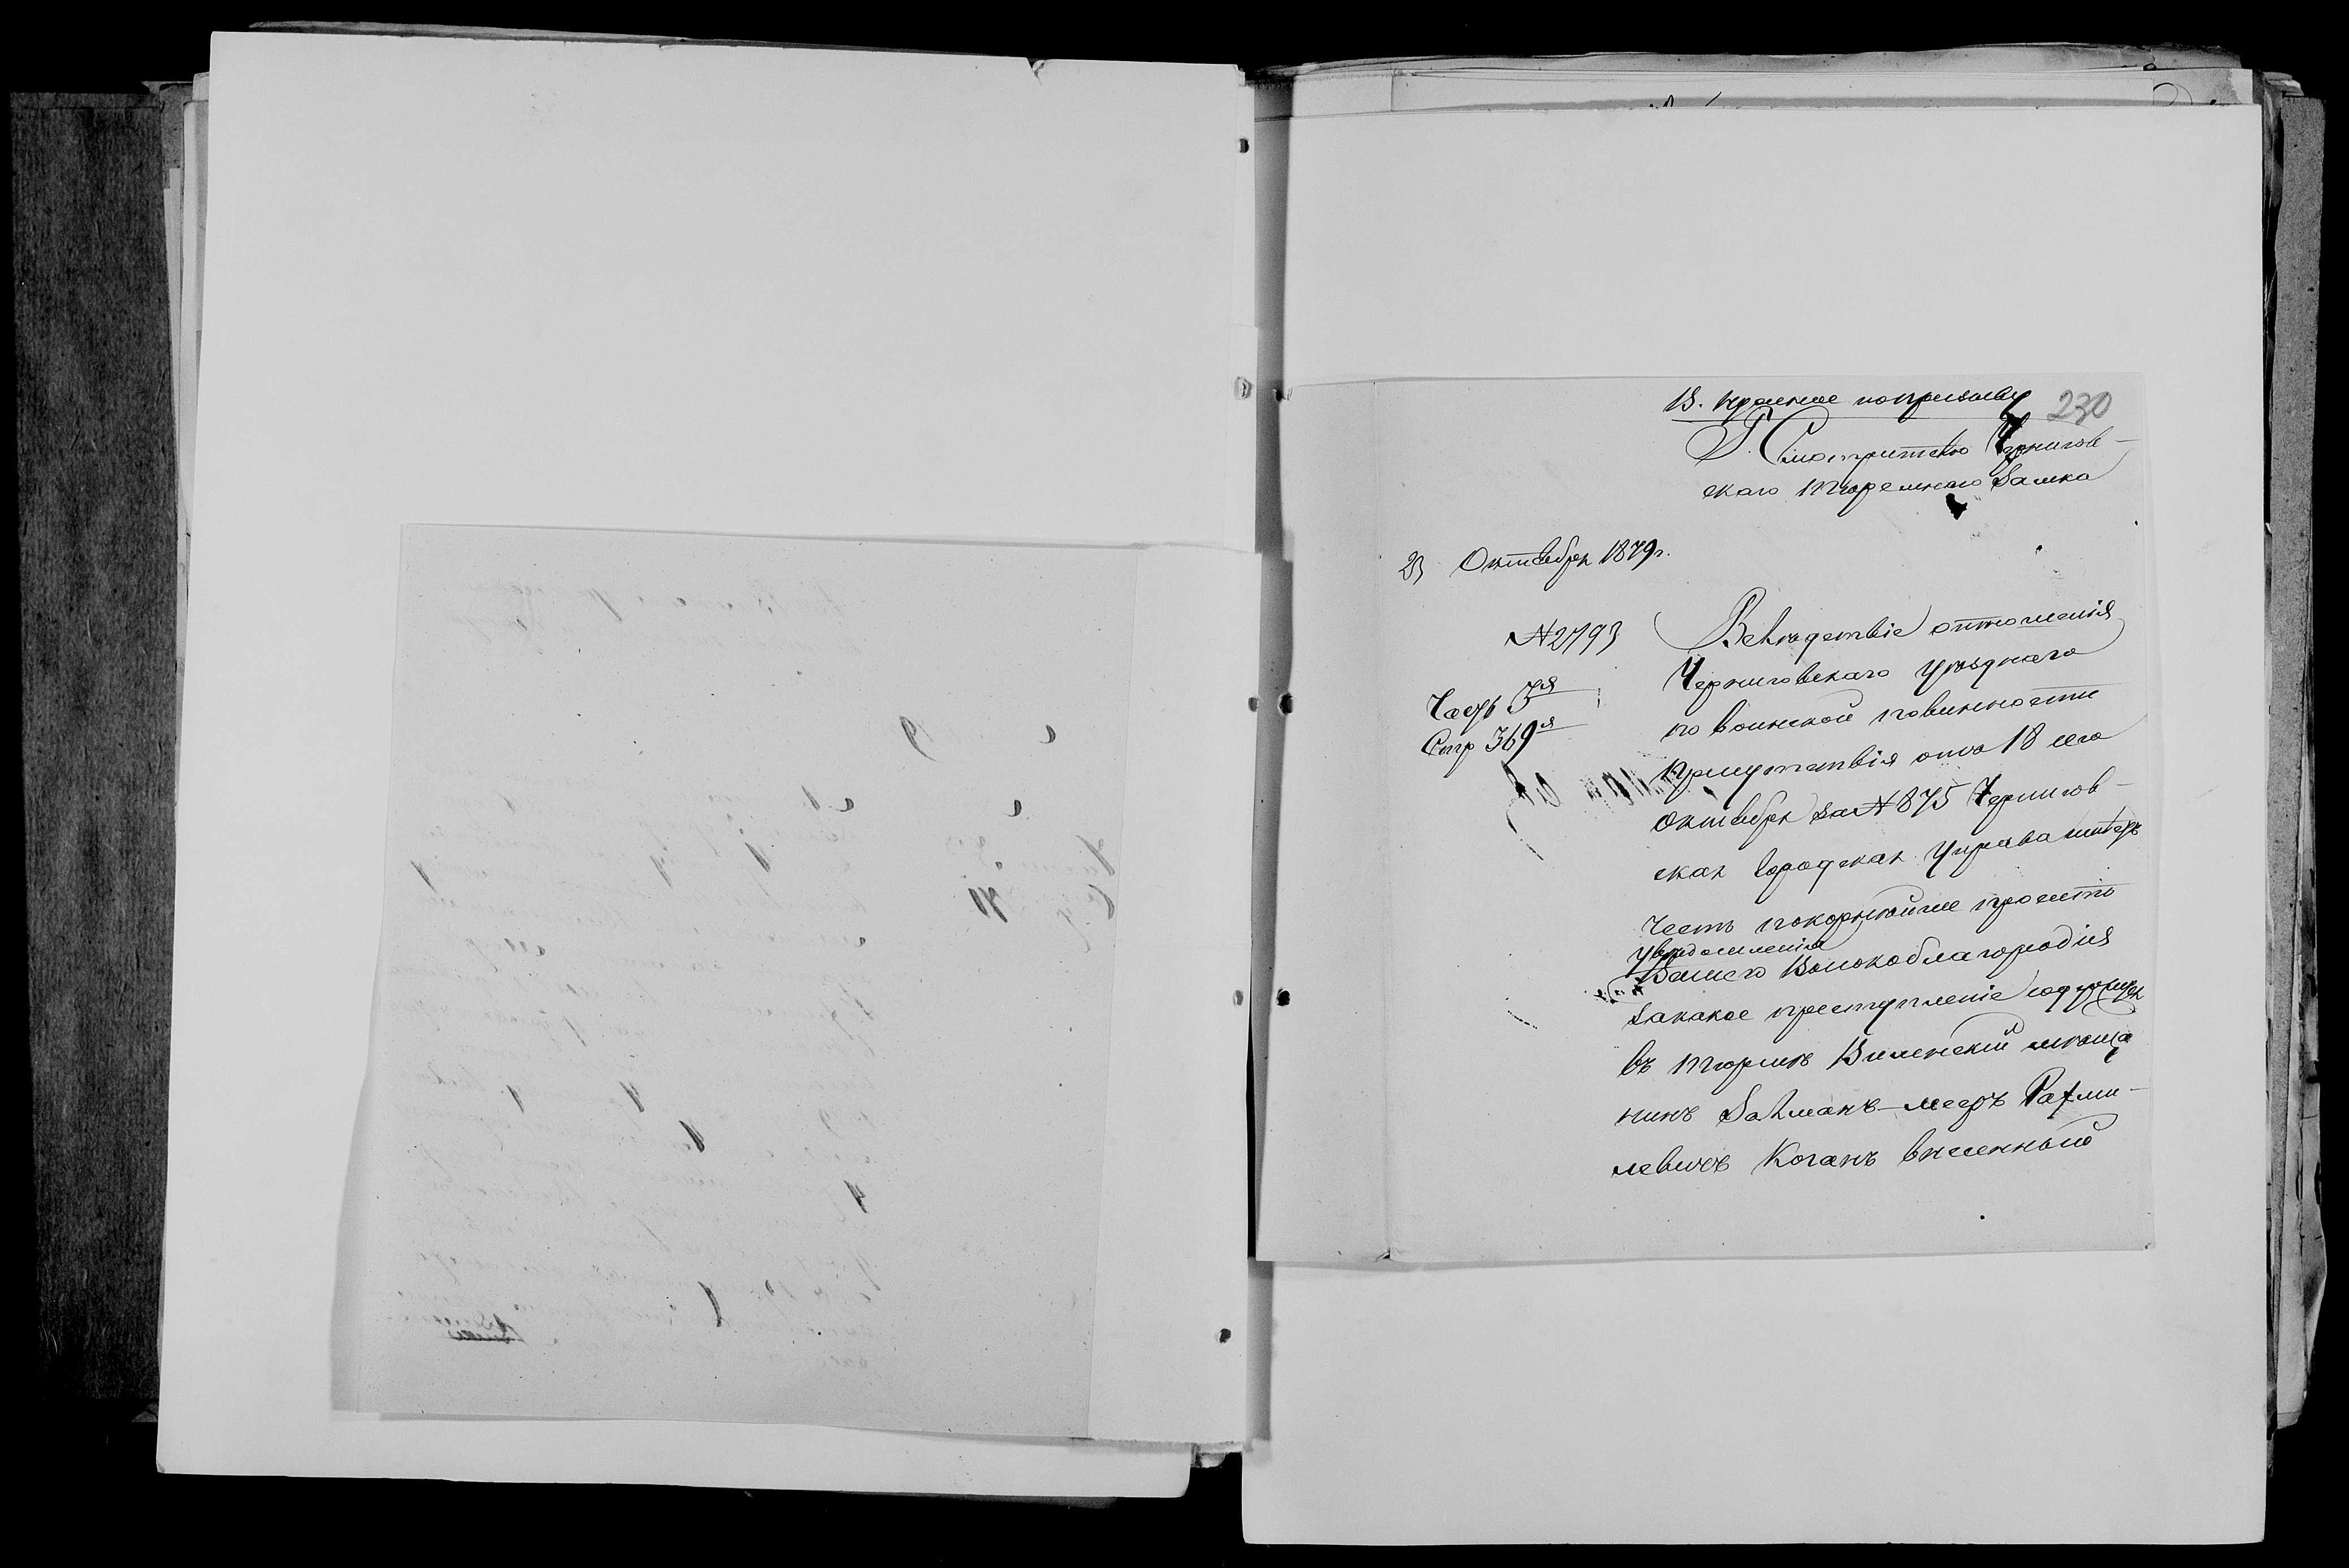 230
Г. Смотрителю Чернигов-
скаго тюремнаго замка
23 Октября 1879 г.
№ 2793
Часть 3я
Стр 369я
Вслѣдствіе отношенія
Черниговскаго уѣзднаго
по воинской повинности
присутствія отъ 18 сего
Октября за № 875 Чернигов-
ская Городская Управа имѣетъ
честь покорнѣйше просить
увѣдомленія
Вашего Высокоблагородія
за какое преступленіе содержится
въ тюрьмѣ Виленскій мѣща
нинъ Залманъ-Мееръ Рахми-
левичъ Коганъ внесенный